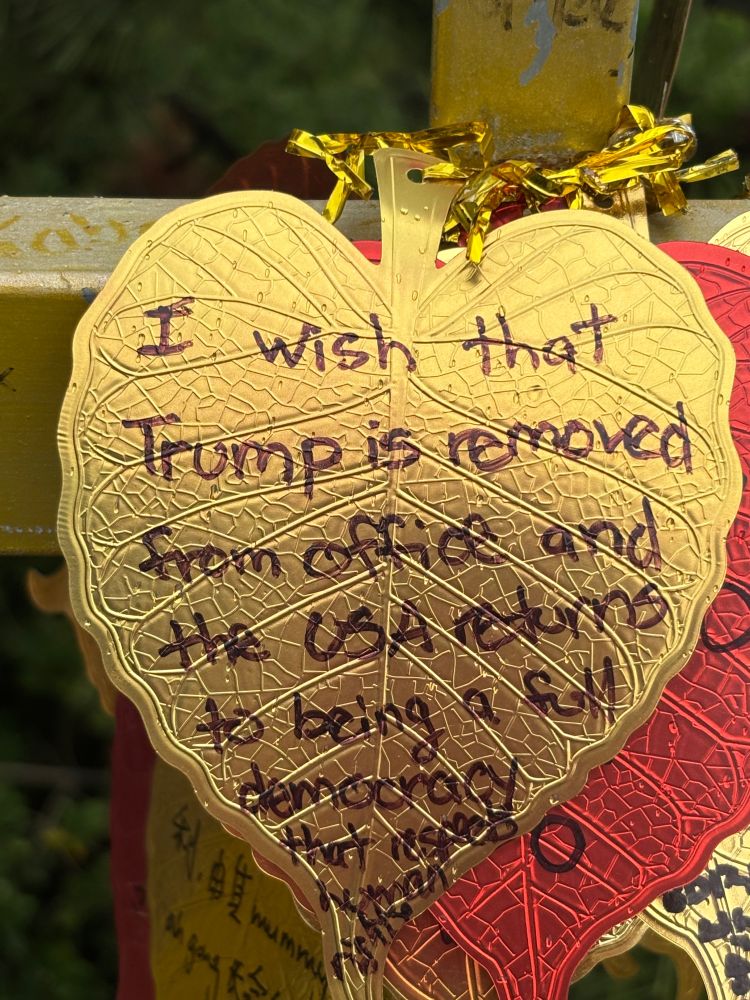 I wish that
Trump is removed
from office and
the USA returns
to being a full
democracy
that respects
human
rights
mummy
ah gong